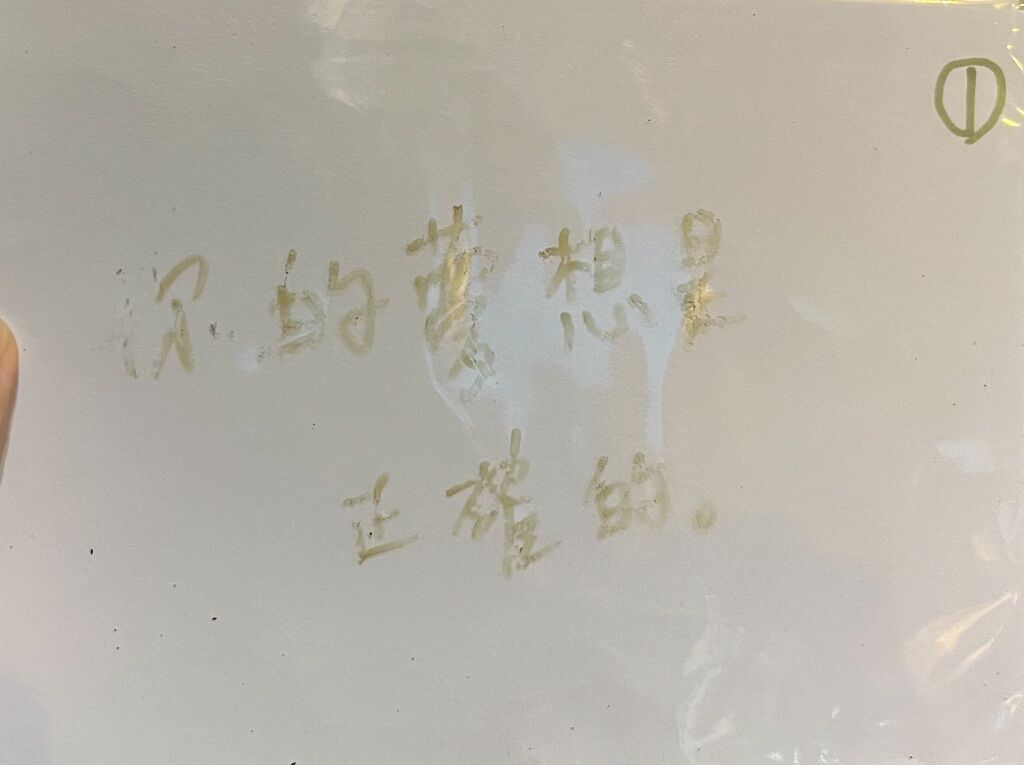 ①
你的夢想是
正確的.